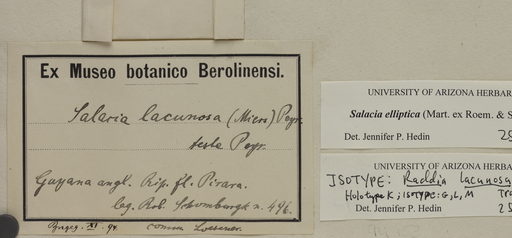 Ex Museo botanico Berolinensi.
Salacia lacunosa (Miers) Peyr.
teste Peyr.
Guyana angl. Rip. fl. Pirara.
leg. Rob. Schomburgk n. 496.
XI. 94. comm. Loesener.
UNIVERSITY OF ARIZONA HERBAR
Salacia elliptica (Mart. ex Roem. & S
Det. Jennifer P. Hedin 25
UNIVERSITY OF ARIZONA HERBAR
ISOTYPE: Raddia lacunosa
Holotype K; ISOTYPE: G, L, M Tra
Det. Jennifer P. Hedin 25